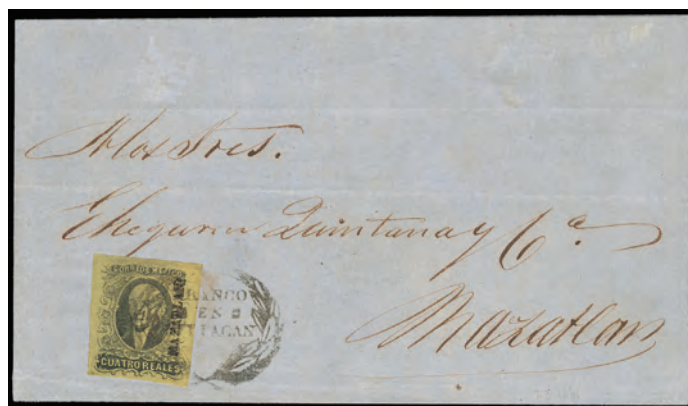 A los Sres.
Echeguren Quintana y Ca.
Mazatlan
CORREOS MEJICO
MAZATLAN
CUATRO REALES
FRANCO
EN
LIACAN